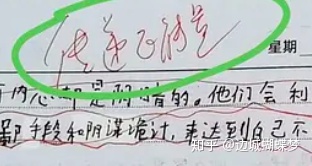 传递正能量
星期
内心都是阴暗的。他们会利
手段和阴谋诡计,来达到自己不
知乎 @边城蝴蝶梦